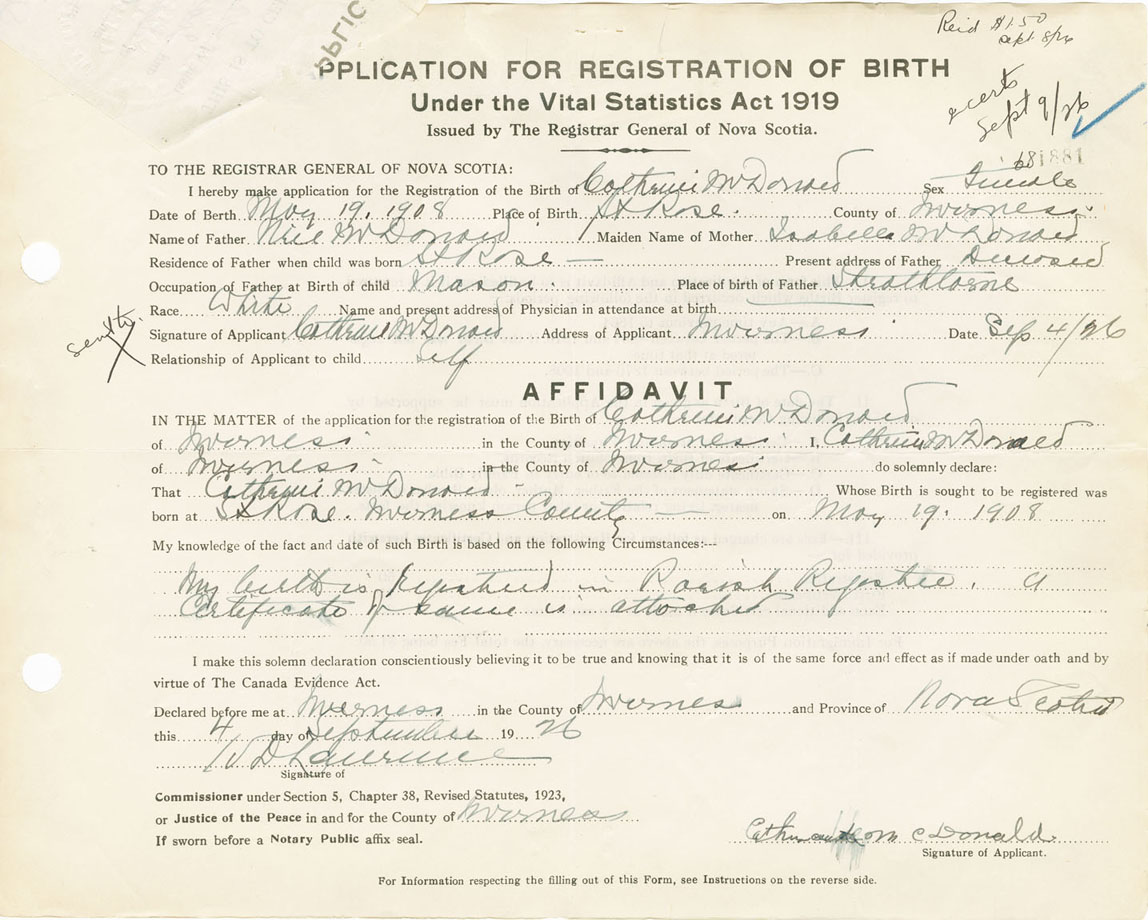 Reid $1.50
Sept. 8/26
PPLIC
PPLICATION FOR REGISTRATION OF BIRTH
Under the Vital Statistics Act 1919
Issued by The Registrar General of Nova Scotia.
Sept 9/26
681881
TO THE REGISTRAR GENERAL OF NOVA SCOTIA:
I hereby make application for the Registration of the Birth of Catherine McDonald Sex Female
Date of Berth May 19, 1908 Place of Birth St Rose. County of Inverness
Name of Father Neil McDonald Maiden Name of Mother Isabella McDonald
Residence of Father when child was born St Rose — Present address of Father Deceased
Occupation of Father at Birth of child Mason. Place of birth of Father Strathlorne
Race White Name and present address of Physician in attendance at birth
Signature of Applicant Catherine McDonald Address of Applicant Inverness Date Sep 4/26
Relationship of Applicant to child self
AFFIDAVIT
IN THE MATTER of the application for the registration of the Birth of Catherine McDonald
of Inverness in the County of Inverness I, Catherine McDonald
of Inverness in the County of Inverness do solemnly declare:
That Catherine McDonald Whose Birth is sought to be registered was
born at St Rose. Inverness County — on May 19. 1908
My knowledge of the fact and date of such Birth is based on the following Circumstances:---
My birth is registered in Parish Register. A
Certificate of same is attached
I make this solemn declaration conscientiously believing it to be true and knowing that it is of the same force and effect as if made under oath and by
virtue of The Canada Evidence Act.
Declared before me at Inverness in the County of Inverness and Province of Nova Scotia
this 4 day of September 1926
Lawrence
Signature of
Commissioner under Section 5, Chapter 38, Revised Statutes, 1923,
or Justice of the Peace in and for the County of Inverness
If sworn before a Notary Public affix seal.
Catherine McDonald
Signature of Applicant.
For Information respecting the filling out of this Form, see Instructions on the reverse side.